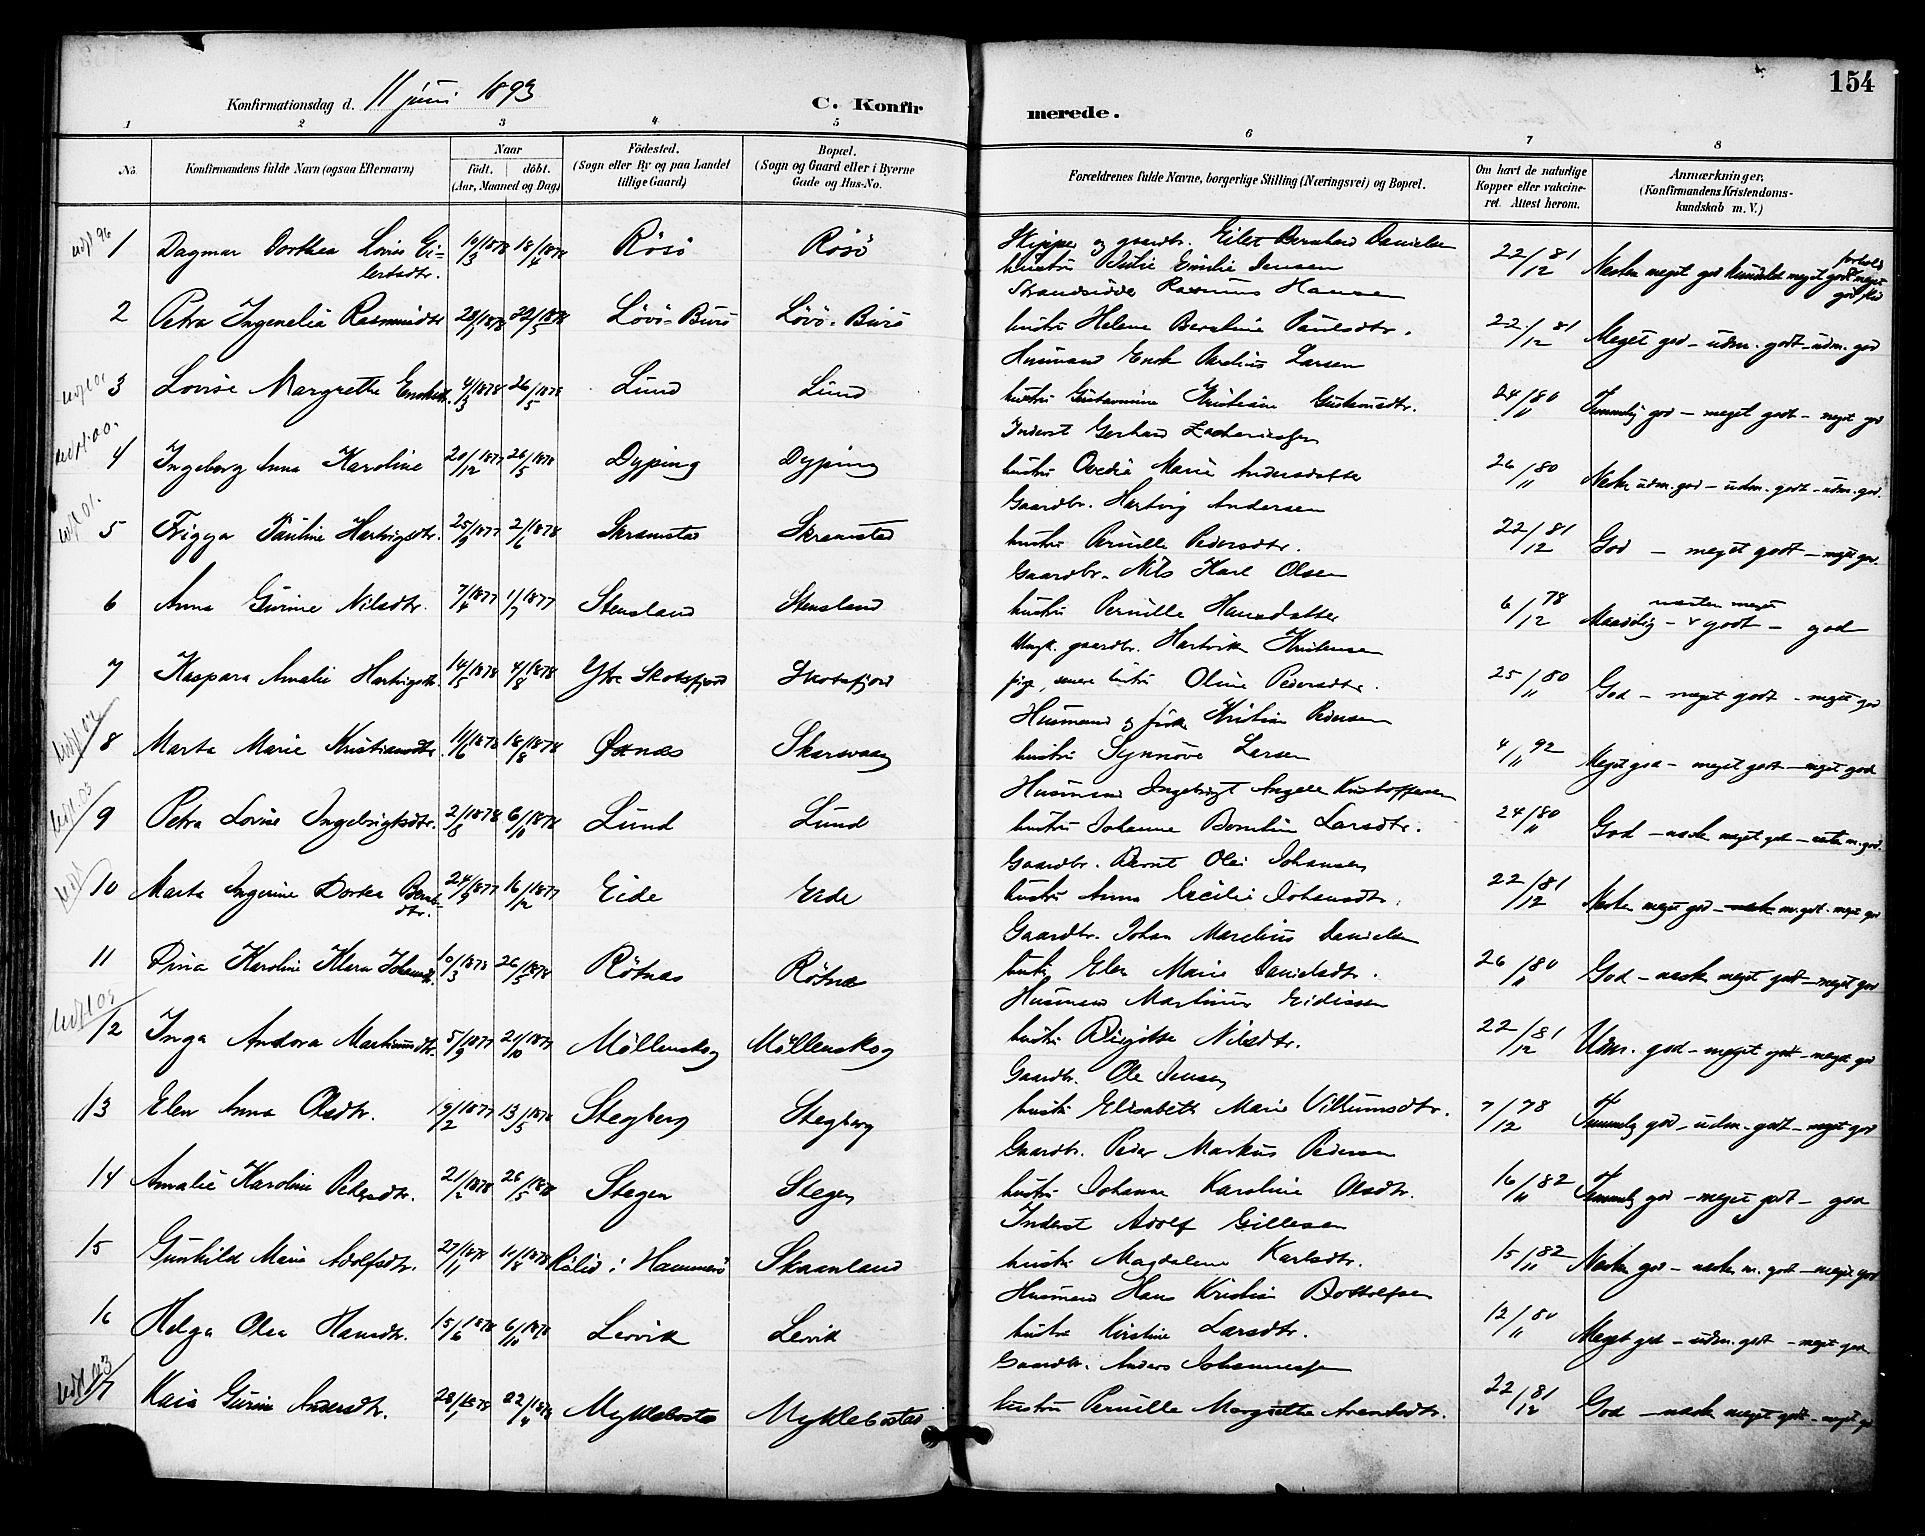 154
Konfirmationsdag d. 11 juni 1893
C. Konfirmerede.
1 2 3 4 5 6 7 8
No. Konfirmandens fulde Navn (ogsaa Efternavn) Naar født. døbt. (Aar, Maaned og Dag) Födested. (Sogn eller By og paa Landet tillige Gaard) Bopæl. (Sogn og Gaard eller i Byerne Gade og Hus-No. Forældrenes fulde Navne, borgerlige Stilling (Næringsvei) og Bopæl. Om havt de naturlige Kopper eller vakcineret. Attest herom. Anmærkninger. (Konfirmandens Kristendomskundskab m. V.)
udfl 96 1 Dagmar Dorthea Lovise Eilertsdtr. 10/3 1878 18/4 1878 Rösö Rösö Skipper og gaardbr. Eilert Bernhard Danielsen
hustru Emilie Jensen 22/12 81
2 Petra Ingenelia Rasmusdtr 22/5 1878 Lövö-Burö Lövö-Burö Strandsidder Rasmus Hansen
hustru Helene Berntine Paulsdtr. 22/12 81 Meget god - udm. godt - udm. god
3 Lovise Margrethe 4/3 1878 26/5 1878 Lund Lund Husmand Enok Larsen
hustru 24/11 80 Temmelig god - meget godt - meget god
4 Ingeborg Anna Karoline 20/12 1877 26/5 1878 Dyping Dyping Inderst Gerhard Zachariassen
hustru Marie Andersdatter 26/11 80 Næsten udm. god - udm. godt - udm. god.
udfl 01. 5 Frigga Pauline Hartvigsdtr. 25/9 1877 2/6 1878 Skramstad Skramstad Gaardbr. Hartvig Andersen
hustru Pernille Pedersdtr. 22/12 81 God - meget godt - meget god
6 Anna Gurine Nilsdtr. 7/4 1877 1/7 1877 Stensland Stensland Gaardbr. Nils Karl Olsen
hustru Pernille Hansdatter 6/12 78 Maadelig - næsten meget godt - god
7 Kaspara Amalie Hartvigsdtr. 14/5 1878 4/8 1878 Ytre Skotsfjord Skotsfjord Ungk. gaardbr. Hartvik Kristensen
pige, senere hustru Oline Pedersdtr. 25/11 80 God - meget godt - meget god
8 Marta Marie Kristiansdtr. 11/6 1878 18/8 1878 Øxnæs Skarvaag Husmand og fisk. Kristian Pedersen
hustru Synnöve Larsen 4/11 92 Meget god - meget godt - meget god
udfl. 03 9 Petra Lovise Ingebrigtsdtr. 2/8 1878 6/10 1878 Lund Lund Husmand Ingebrigt Angell Kristoffersen
hustru Johanna Larsdtr. 24/11 80 God - næsten meget godt - næsten m. god.
udfl 10 Marta Ingerine Dorthea 24/9 1877 16/12 1877 Eide Eide Gaardbr. Bernt Olai Johansen
hustru Anna Cecilie Johansdtr. 22/12 81 Næsten meget god - m. godt - meget god
11 Dina Karoline Klara Johansdtr. 10/3 1878 26/5 1878 Rötnæs Rötnæs Gaardbr. Johan Marelius Danielsen
hustru Elen Marie Danielsdtr. 26/11 80 God - næsten meget godt - meget god
12 Inga Andora Martinusdtr. 5/9 1877 21/10 1877 Möllenskog Möllenskog Husmand Martinus Eidissen
hustru Birgitte Nilsdtr. 22/12 81 Udm. god - meget godt - meget god
13 Elen Anna Olsdtr. 19/2 1877 13/5 Stegberg Stegberg Gaardbr. Ole Jensen
hustru Elisabeth Marie Villumsdtr. 7/12 78 Temmelig god - udm. godt - meget god
14 Amalie Karoline Pedersdtr. 21/2 1878 26/5 1878 Stegen Stegen Gaardbr. Peder Markus Pedersen
hustru Johanna Karoline Olsdtr. 16/11 82 Temmelig god - meget godt - god
15 Gunhild Marie Adolfsdtr. 27/1 1878 11/8 1878 i Hammerö Skaanland Inderst Adolf Gillesen
hustru Magdalene Karlsdtr. 15/11 82 Næsten god - næsten m. godt - meget god
16 Helga Olea Hansdtr. 15/6 1878 6/10 1878 Leivik Leivik Husmand Hans Kristian Bottolfsen
hustru Kirstine Larsdtr. 12/11 80 Meget god - udm. godt - meget god
udfl. 03 17 Kaia Gurine Andersdtr. 28/1 1878 22/4 1878 Myklebostad Myklebostad Gaardbr. Anders Johannessen
hustru Pernille Margrethe Arentsdtr. 22/12 81 God - næsten meget godt - meget god